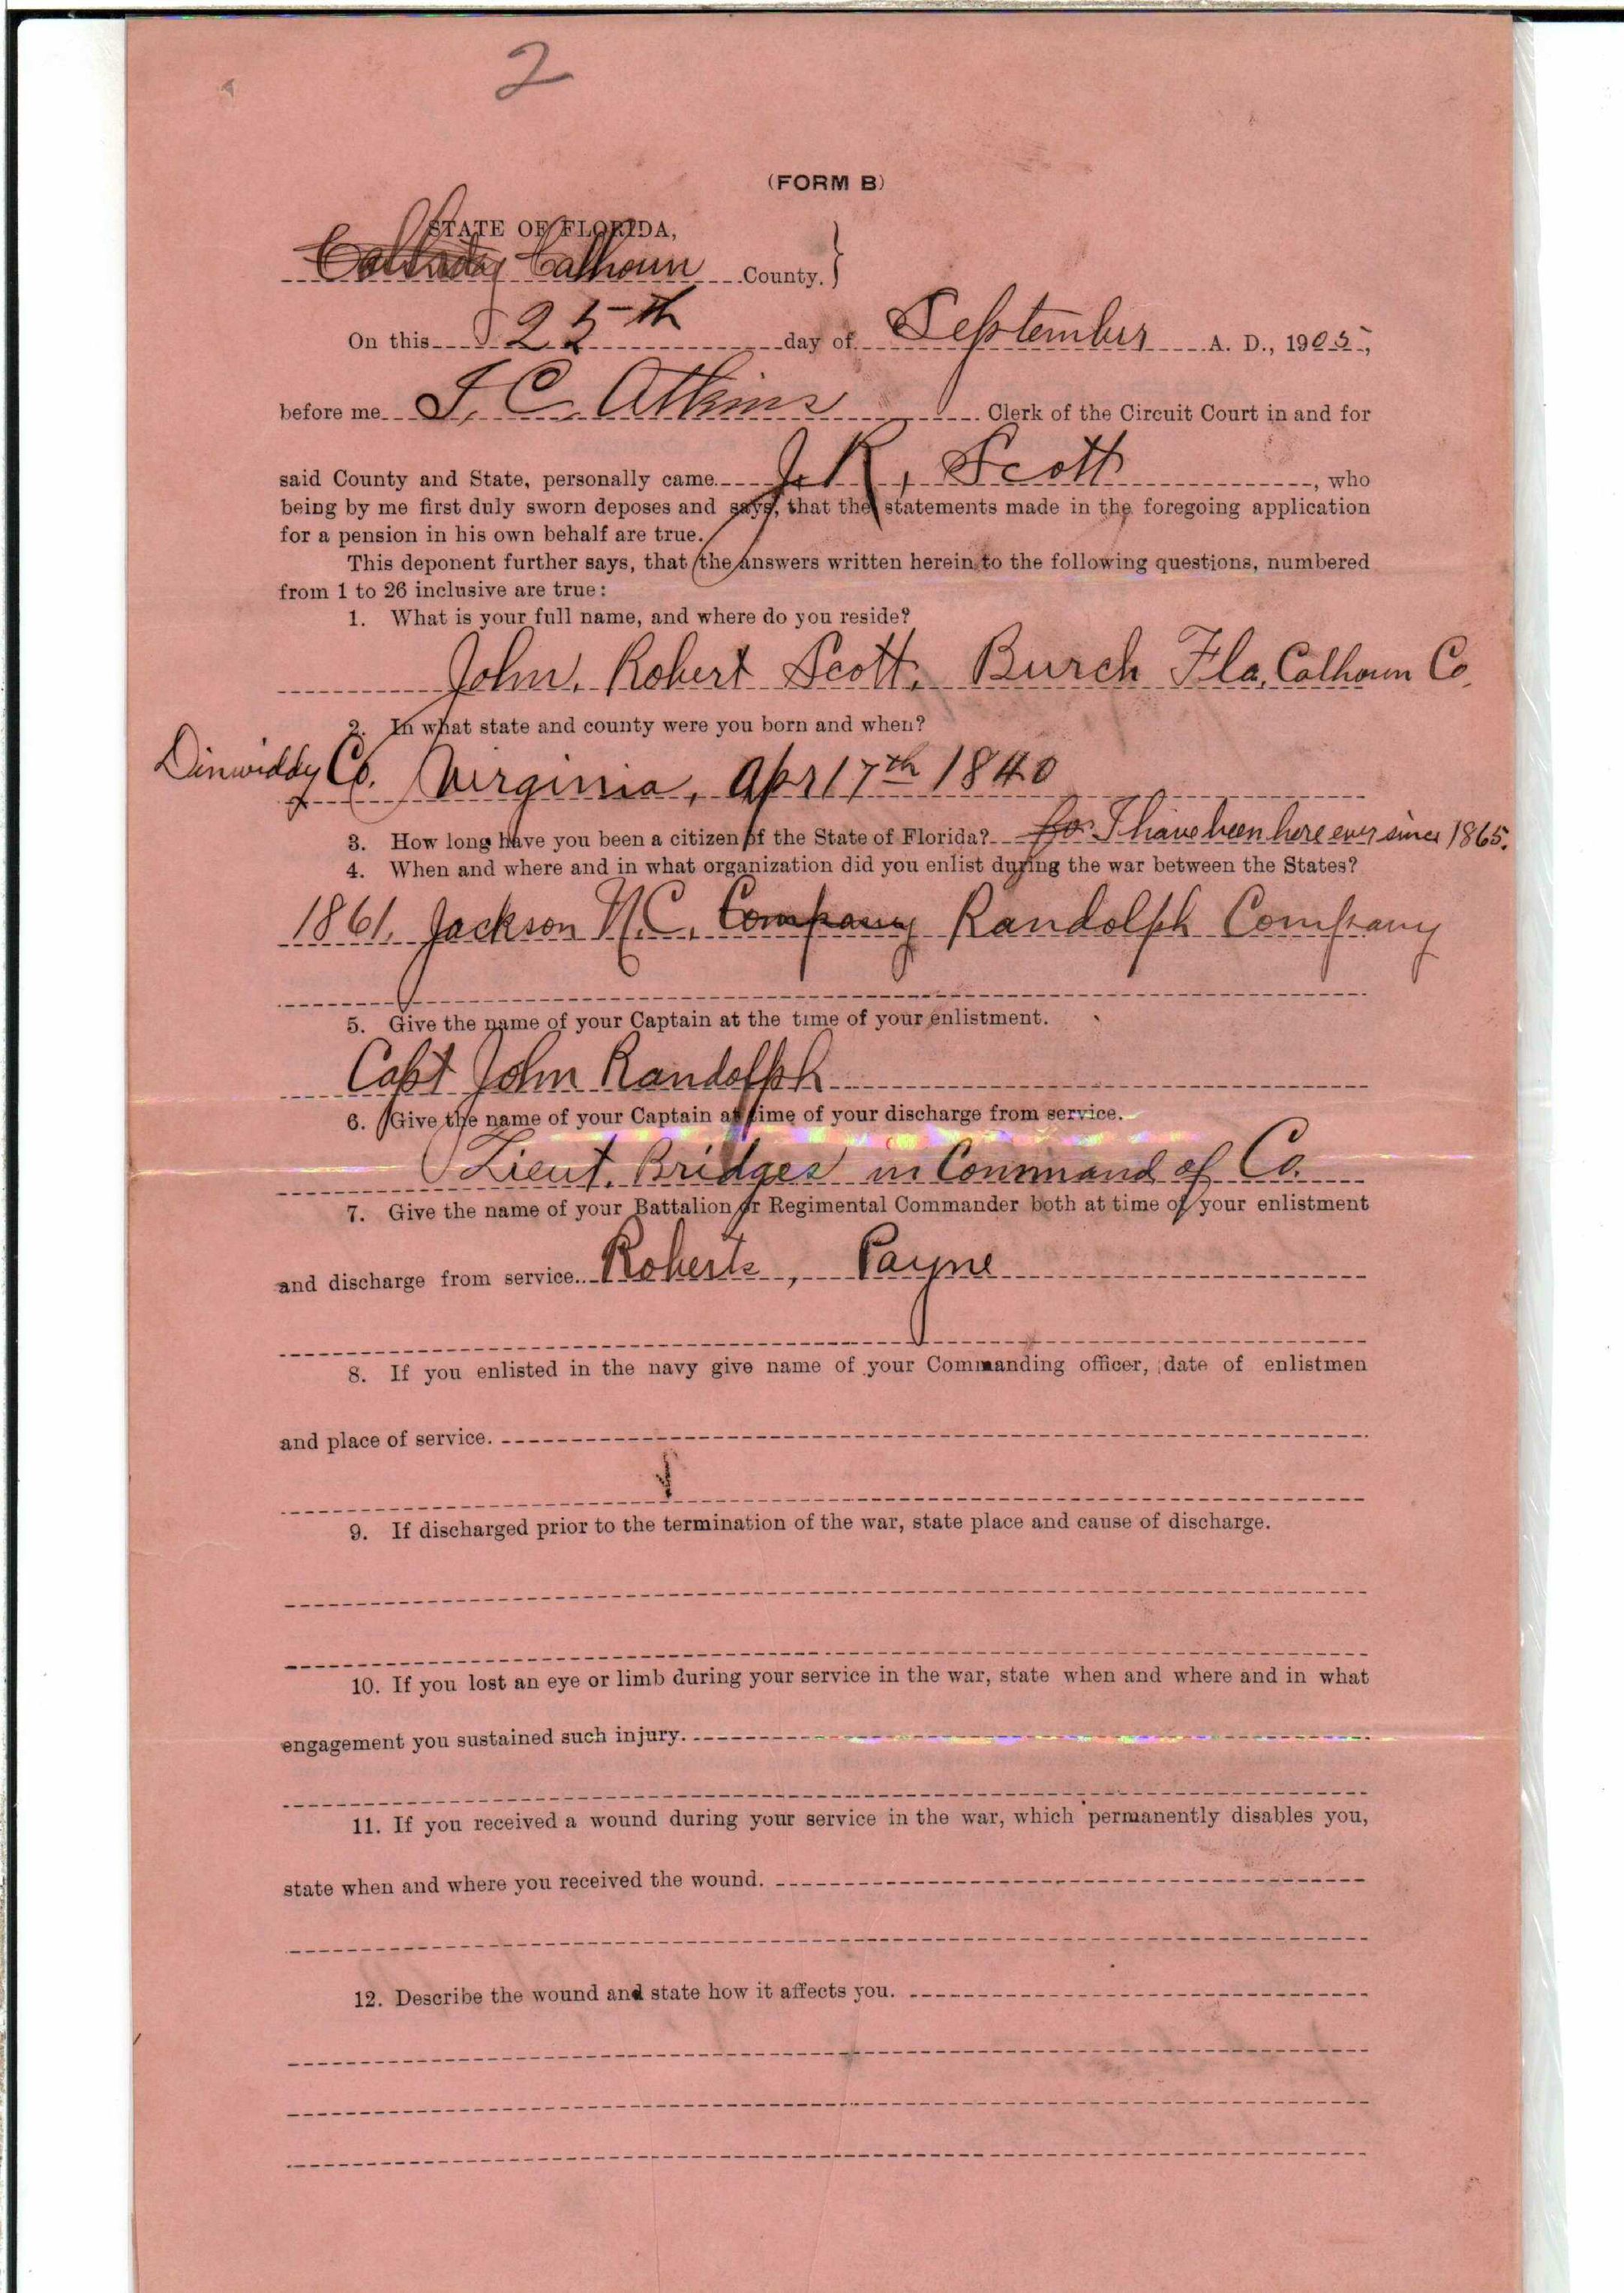 2
(FORM B)
STATE OF FLORIDA,
Calhoun County. }
On this 25th day of September A. D., 1905,
before me J. C. Atkins Clerk of the Circuit Court in and for
said County and State, personally came J. R. Scott, who
being by me first duly sworn deposes and says, that the statements made in the foregoing application
for a pension in his own behalf are true.
This deponent further says, that the answers written herein to the following questions, numbered
from 1 to 26 inclusive are true:
1. What is your full name, and where do you reside?
John, Robert Scott, Burch Fla, Calhoun Co.
2. In what state and county were you born and when?
Dinwiddy Co. Virginia, Apr 17th 1840
3. How long have you been a citizen of the State of Florida? I have been here ever since 1865.
4. When and where and in what organization did you enlist during the war between the States?
1861, Jackson N.C. Company Randolph Company
5. Give the name of your Captain at the time of your enlistment.
Capt John Randolph
6. Give the name of your Captain at time of your discharge from service.
Lieut. Bridges in Command of Co.
7. Give the name of your Battalion or Regimental Commander both at time of your enlistment
and discharge from service. Roberts, Payne
8. If you enlisted in the navy give name of your Commanding officer, date of enlistmen
and place of service.
9. If discharged prior to the termination of the war, state place and cause of discharge.
10. If you lost an eye or limb during your service in the war, state when and where and in what
engagement you sustained such injury.
11. If you received a wound during your service in the war, which permanently disables you,
state when and where you received the wound.
12. Describe the wound and state how it affects you.